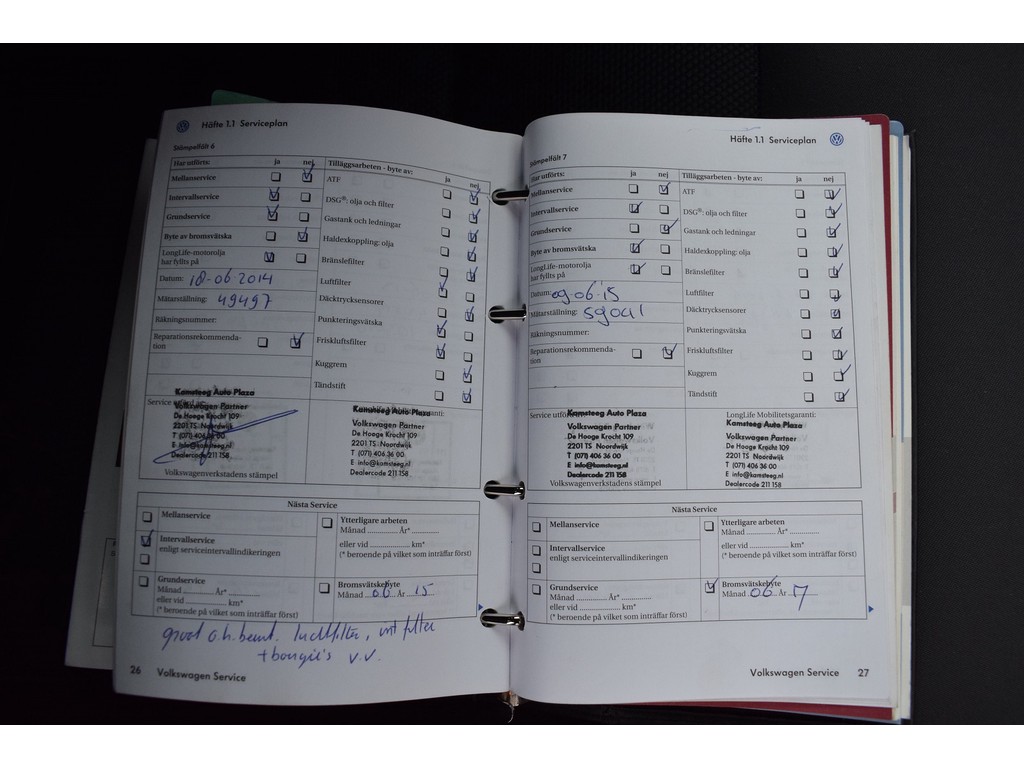 Häfte 1.1 Serviceplan
Stämpelfält 6
Har utförts: ja nej
Mellanservice
Intervallservice
Grundservice
Byte av bromsvätska
LongLife-motorolja
har fyllts på
Datum: 18-06-2014
Mätarställning: 49497
Räkningsnummer:
Reparationsrekommenda-
tion
Tilläggsarbeten - byte av: ja nej
ATF
DSG®: olja och filter
Gastank och ledningar
Haldexkoppling: olja
Bränslefilter
Luftfilter
Däcktrycksensorer
Punkteringsvätska
Friskluftsfilter
Kuggrem
Tändstift
Service utförd av:
Kamsteeg Auto Plaza
Volkswagen Partner
De Hooge Krocht 109
2201 TS Noordwijk
T (071) 406 36 00
E info@kamsteeg.nl
Dealercode 211 158
Volkswagenverkstadens stämpel
Kamsteeg Auto Plaza
Volkswagen Partner
De Hooge Krocht 109
2201 TS Noordwijk
T (071) 406 36 00
E info@kamsteeg.nl
Dealercode 211 158
Nästa Service
Mellanservice
Intervallservice
enligt serviceintervallindikeringen
Grundservice
Månad ............ År*............
eller vid .................. km*
(* beroende på vilket som inträffar först)
Ytterligare arbeten
Månad ............ År* ............
eller vid .................. km*
(* beroende på vilket som inträffar först)
Bromsvätskebyte
Månad 06 År 15
luchtfilter, int filter
+ bougie's v.v.
26 Volkswagen Service
Häfte 1.1 Serviceplan
Stämpelfält 7
Har utförts: ja nej
Mellanservice
Intervallservice
Grundservice
Byte av bromsvätska
LongLife-motorolja
har fyllts på
Datum: 09-06-15
Mätarställning: 59041
Räkningsnummer:
Reparationsrekommenda-
tion
Tilläggsarbeten - byte av: ja nej
ATF
DSG®: olja och filter
Gastank och ledningar
Haldexkoppling: olja
Bränslefilter
Luftfilter
Däcktrycksensorer
Punkteringsvätska
Friskluftsfilter
Kuggrem
Tändstift
Service utförd av:
Kamsteeg Auto Plaza
Volkswagen Partner
De Hooge Krocht 109
2201 TS Noordwijk
T (071) 406 36 00
E info@kamsteeg.nl
Dealercode 211 158
Volkswagenverkstadens stämpel
LongLife Mobilitetsgaranti:
Kamsteeg Auto Plaza
Volkswagen Partner
De Hooge Krocht 109
2201 TS Noordwijk
T (071) 406 36 00
E info@kamsteeg.nl
Dealercode 211 158
Nästa Service
Mellanservice
Intervallservice
enligt serviceintervallindikeringen
Grundservice
Månad ............ År* ............
eller vid .................. km*
(* beroende på vilket som inträffar först)
Ytterligare arbeten
Månad ............ År* ............
eller vid .................. km*
(* beroende på vilket som inträffar först)
Bromsvätskebyte
Månad 06 År 17
Volkswagen Service 27